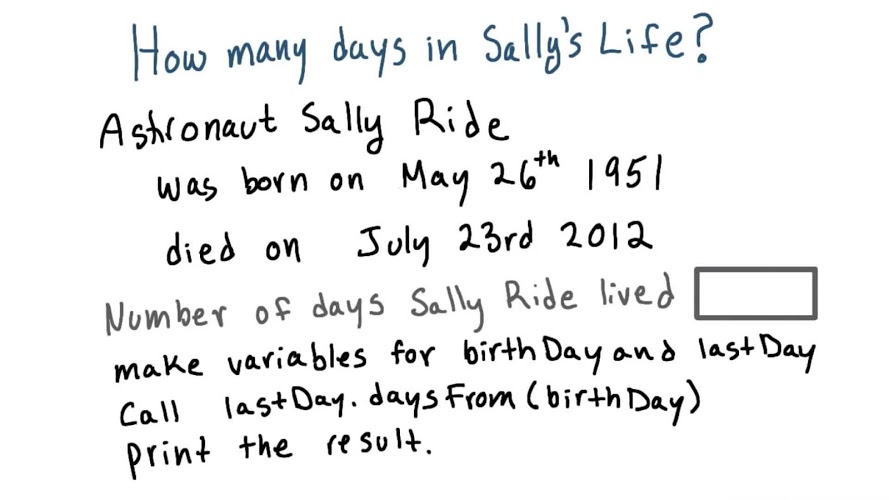 How many days in Sally's Life?
Astronaut Sally Ride
was born on May 26th 1951
died on July 23rd 2012
Number of days Sally Ride lived
make variables for birthDay and lastDay
Call lastDay.daysFrom(birthDay)
print the result.